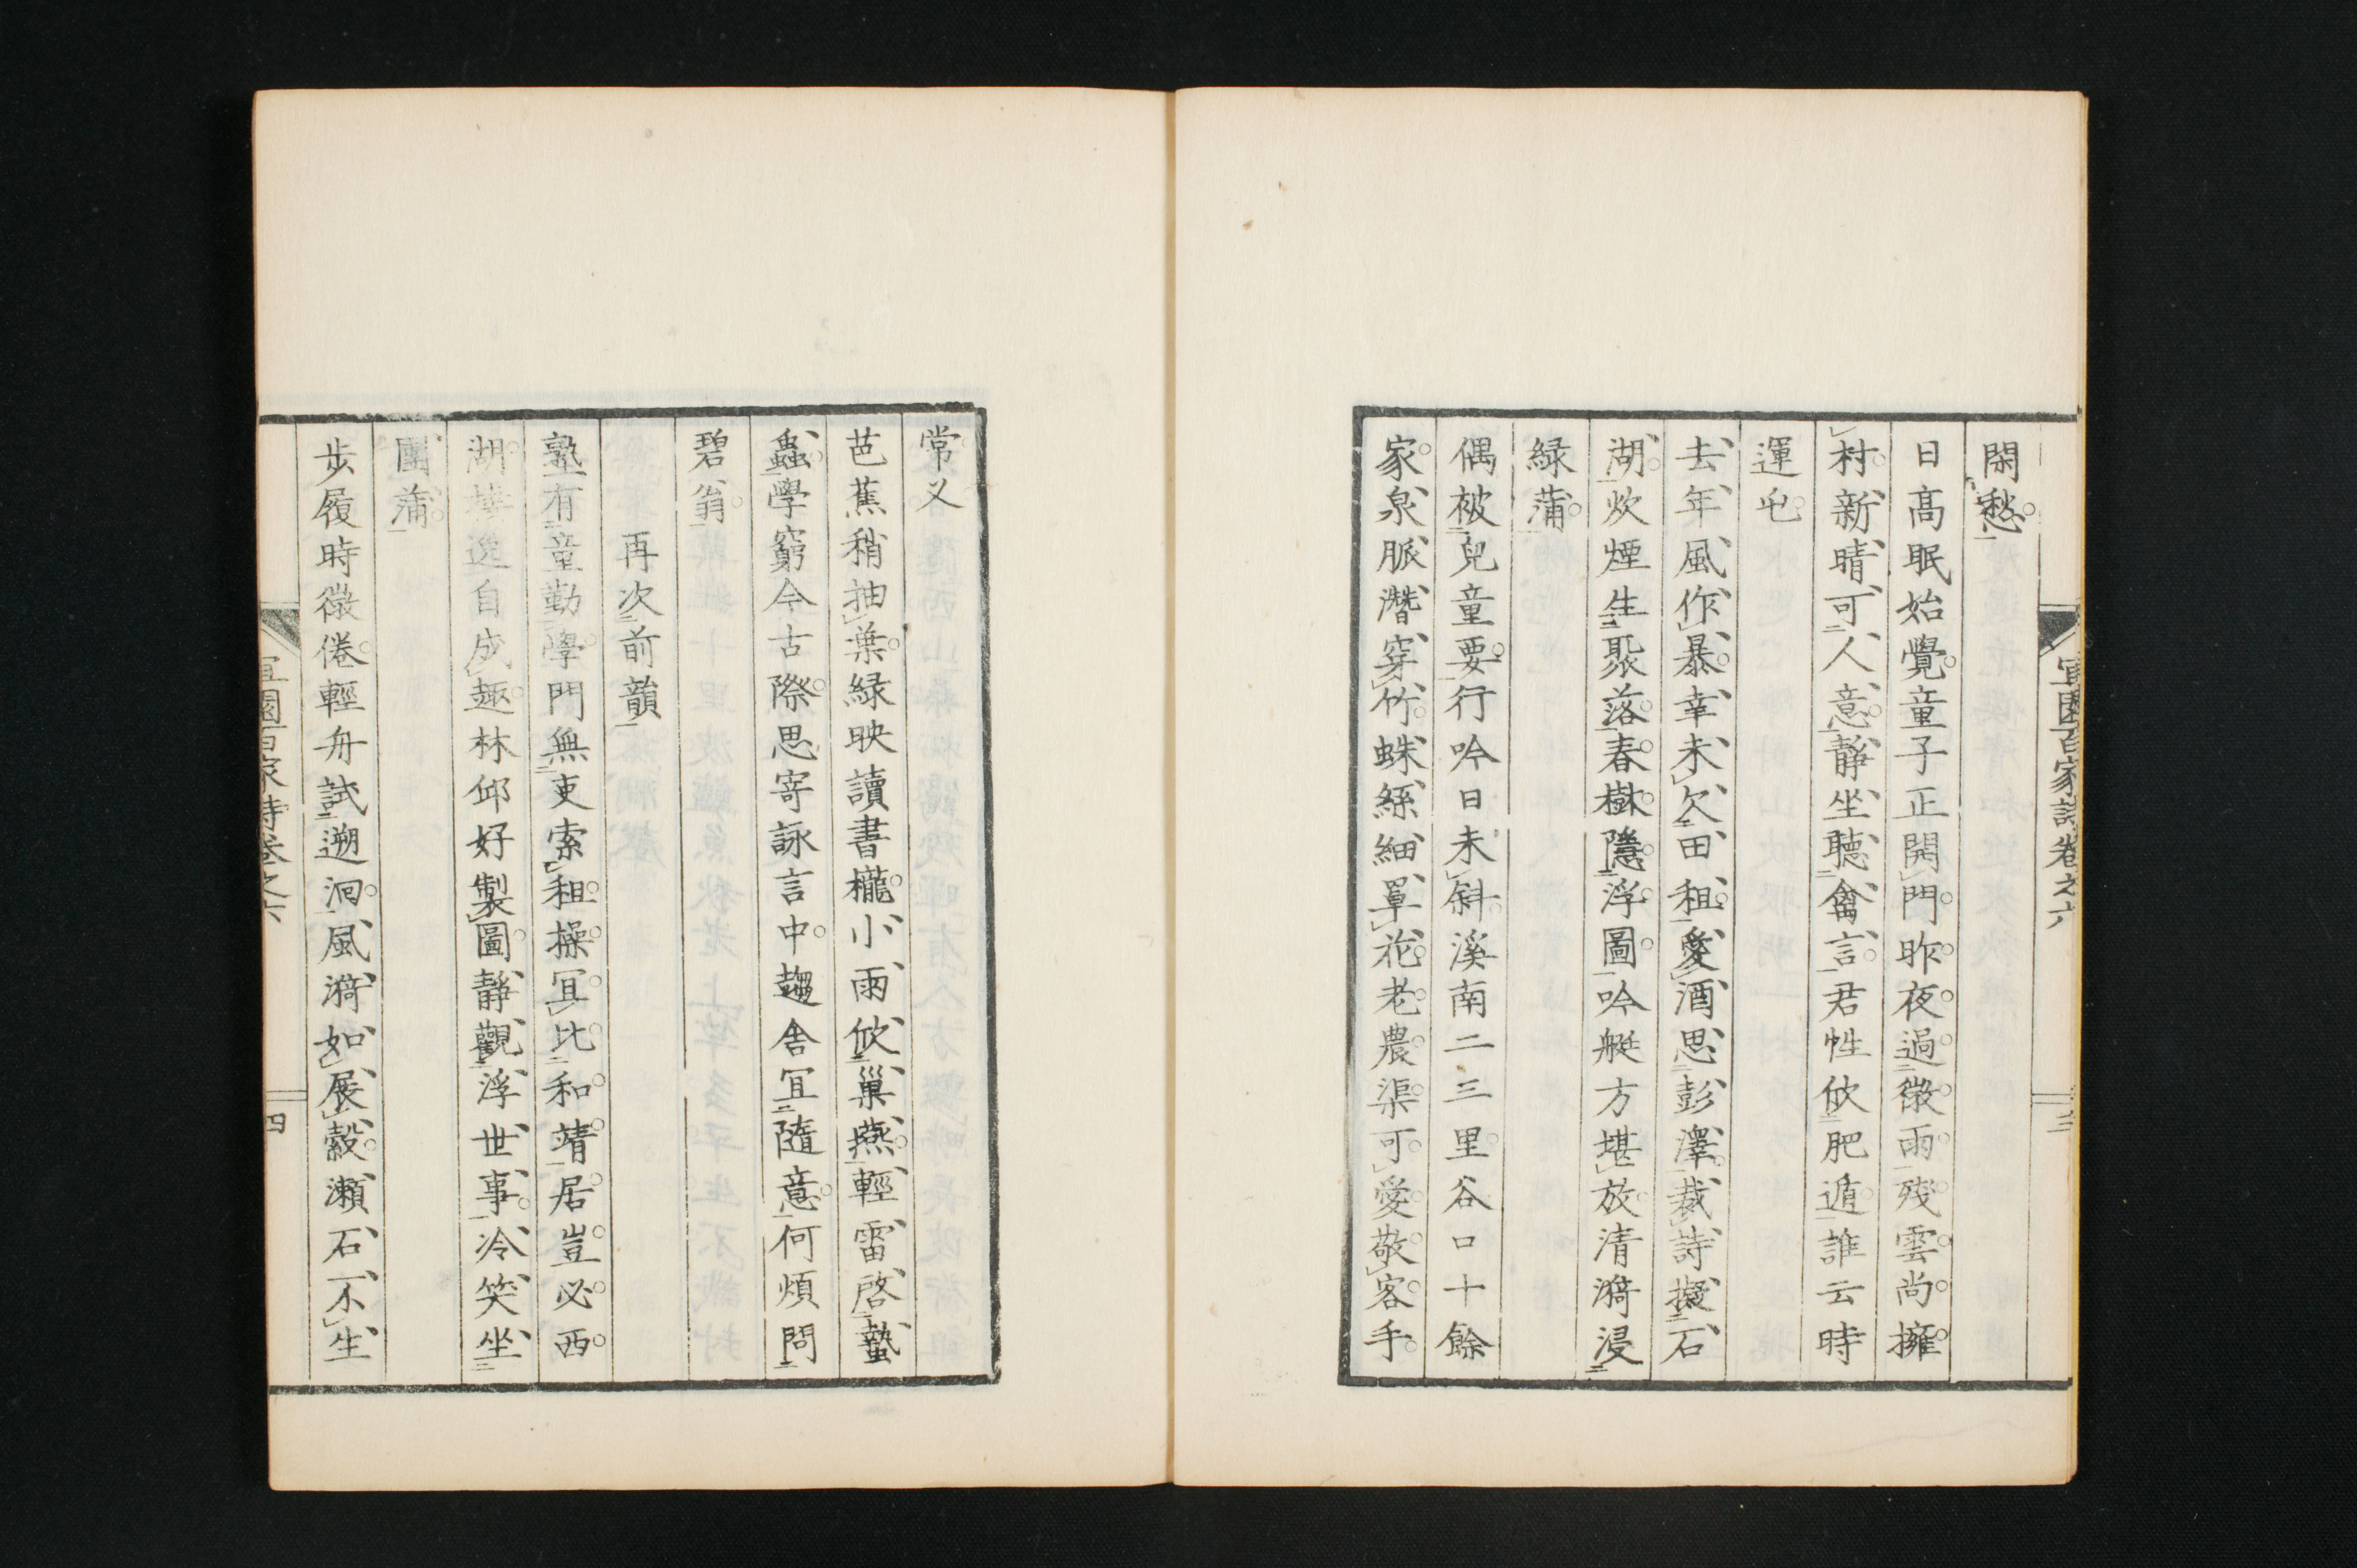 閑愁
日高眠始覺童子正開門昨夜過微雨殘雲尚擁
村新晴可人意靜坐聽禽言君性攸肥遁誰云時
運屯
去年風作暴幸未欠田租愛酒思彭澤裁詩擬石
湖炊煙生聚落春樹隱浮圖吟艇方堪放清漪浸
緑蒲
偶被兒童要行吟日未斜溪南二三里谷口十餘
家泉脈潛穿竹蛛絲細罩花老農渠可愛敬客手
宜園百家詩卷之六
三
常叉
芭蕉稍抽葉緑映讀書櫳小雨攸巢燕輕雷啓蟄
蟲學窮今古際思寄詠言中趨舍宜隨意何煩問
碧翁
再次前韻
塾有童勤學門無吏索租操宜比和靖居豈必西
湖逸自成趣林邱好製圖靜觀浮世事冷笑坐
團蒲
步履時微倦輕舟試遡洄風漪如展縠瀬石不生
宜園百家詩卷之六
四